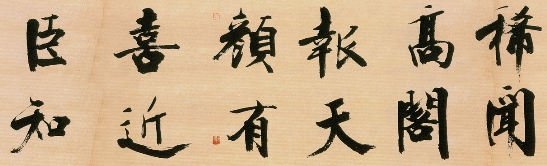 稀聞
高閣
報天
顏有
喜近
臣知